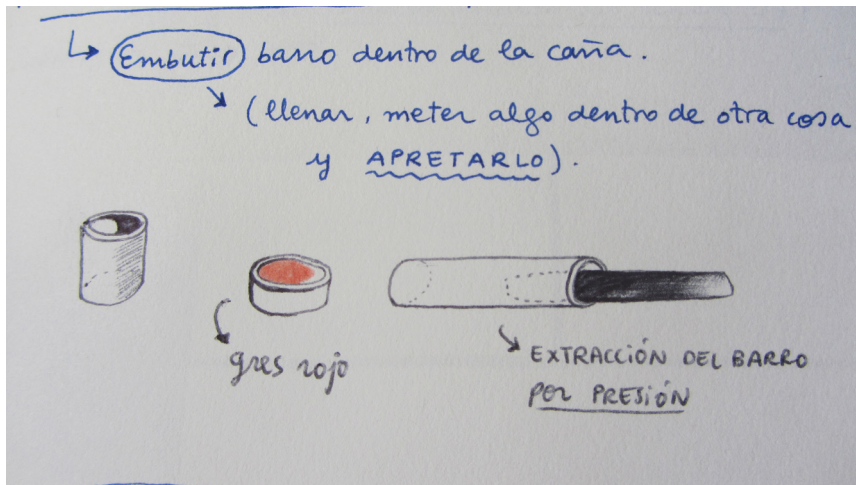 ↳ Embutir barro dentro de la caña.
(llenar, meter algo dentro de otra cosa
y APRETARLO).
gres rojo
EXTRACCIÓN DEL BARRO
POR PRESIÓN